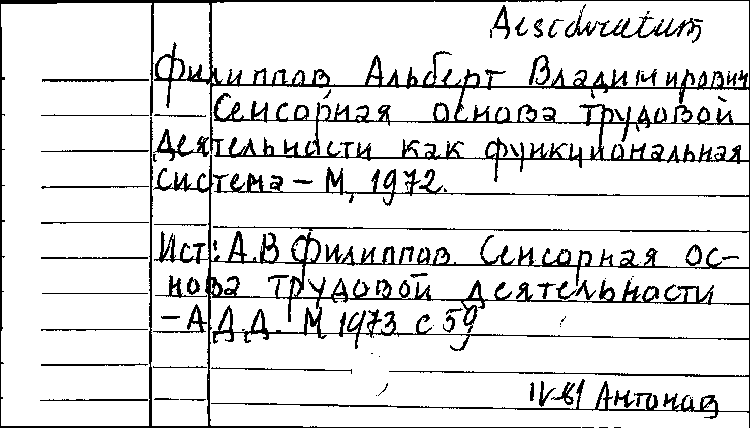 Desideratum
Филиппов Альберт Владимирович
Сенсорная основа трудовой
деятельности как функциональная
система – М, 1972.
Ист: А.В Филиппов. Сенсорная ос-
нова трудовой деятельности
– А.Д.Д. М 1973 с 59
IV-81 Антонав